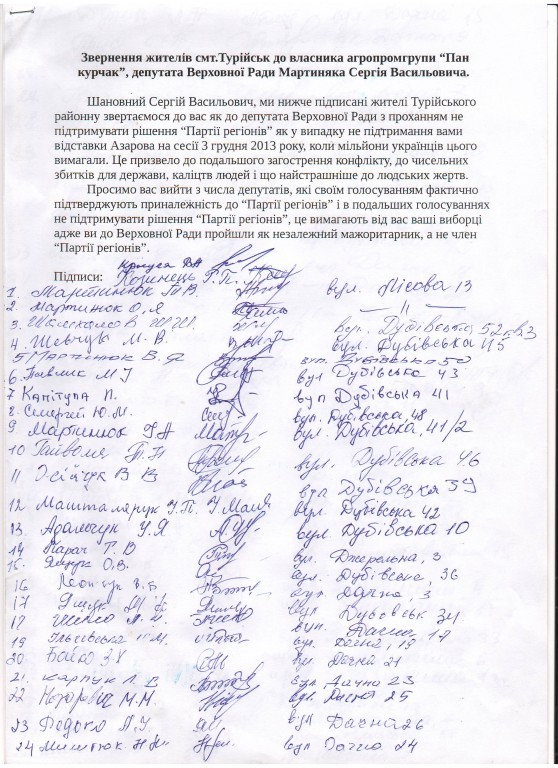 Звернення жителів смт.Турійськ до власника агропромгрупи “Пан
курчак”, депутата Верховної Ради Мартиняка Сергія Васильовича.
Шановний Сергій Васильович, ми нижче підписані жителі Турійського
району звертаємося до вас як до депутата Верховної Ради з проханням не
підтримувати рішення “Партії регіонів” як у випадку не підтримання вами
відставки Азарова на сесії 3 грудня 2013 року, коли мільйони українців цього
вимагали. Це призвело до подальшого загострення конфлікту, до чисельних
збитків для держави, каліцтв людей і що найстрашніше до людських жертв.
Просимо вас вийти з числа депутатів, які своїм голосуванням фактично
підтверджують приналежність до “Партії регіонів” і в подальших голосуваннях
не підтримувати рішення “Партії регіонів”, це вимагають від вас ваші виборці
адже ви до Верховної Ради пройшли як незалежний мажоритарник, а не член
“Партії регіонів”.
Підписи: Козинець Г.П.
1. Мартинюк Т.В. вул. Лісова 13
2. Мартинюк О.Я — // —
3. вул. Дубівська
4. Шевчук М. В. вул. Дубівська
5 Мартинюк В. Ф вул. Дубівська 50
6. Павлик М вул Дубівська 43
7 Капітула П. вул Дубівська 41
8. Семергей Ю.М. вул. Дубівська, 48
9 Мартинюк вул. Дубівська, 41/2
10 Гайволя Т.П вул. Дубівська 46
11 В В вул Дубівська 39
12 У.П. вул. Дубівська 42
13. Адамчук У.Я вул. Дубівська 10
14 Карач Г. В вул. Джерельна, 3
15. О.В. вул. Дубівська, 36
16. вул. Дачна, 3
17 вул Дубівськ 34
18 вул. 17
19 вул. Дачна, 19
20 Бойко З.Х вул. Дачна 21
21. Карпук вул. Дачна 23
22. М.М. вул. Дачна 25
23 Федоко Л.У. вул Дачна 26
24 вул Дачна 24